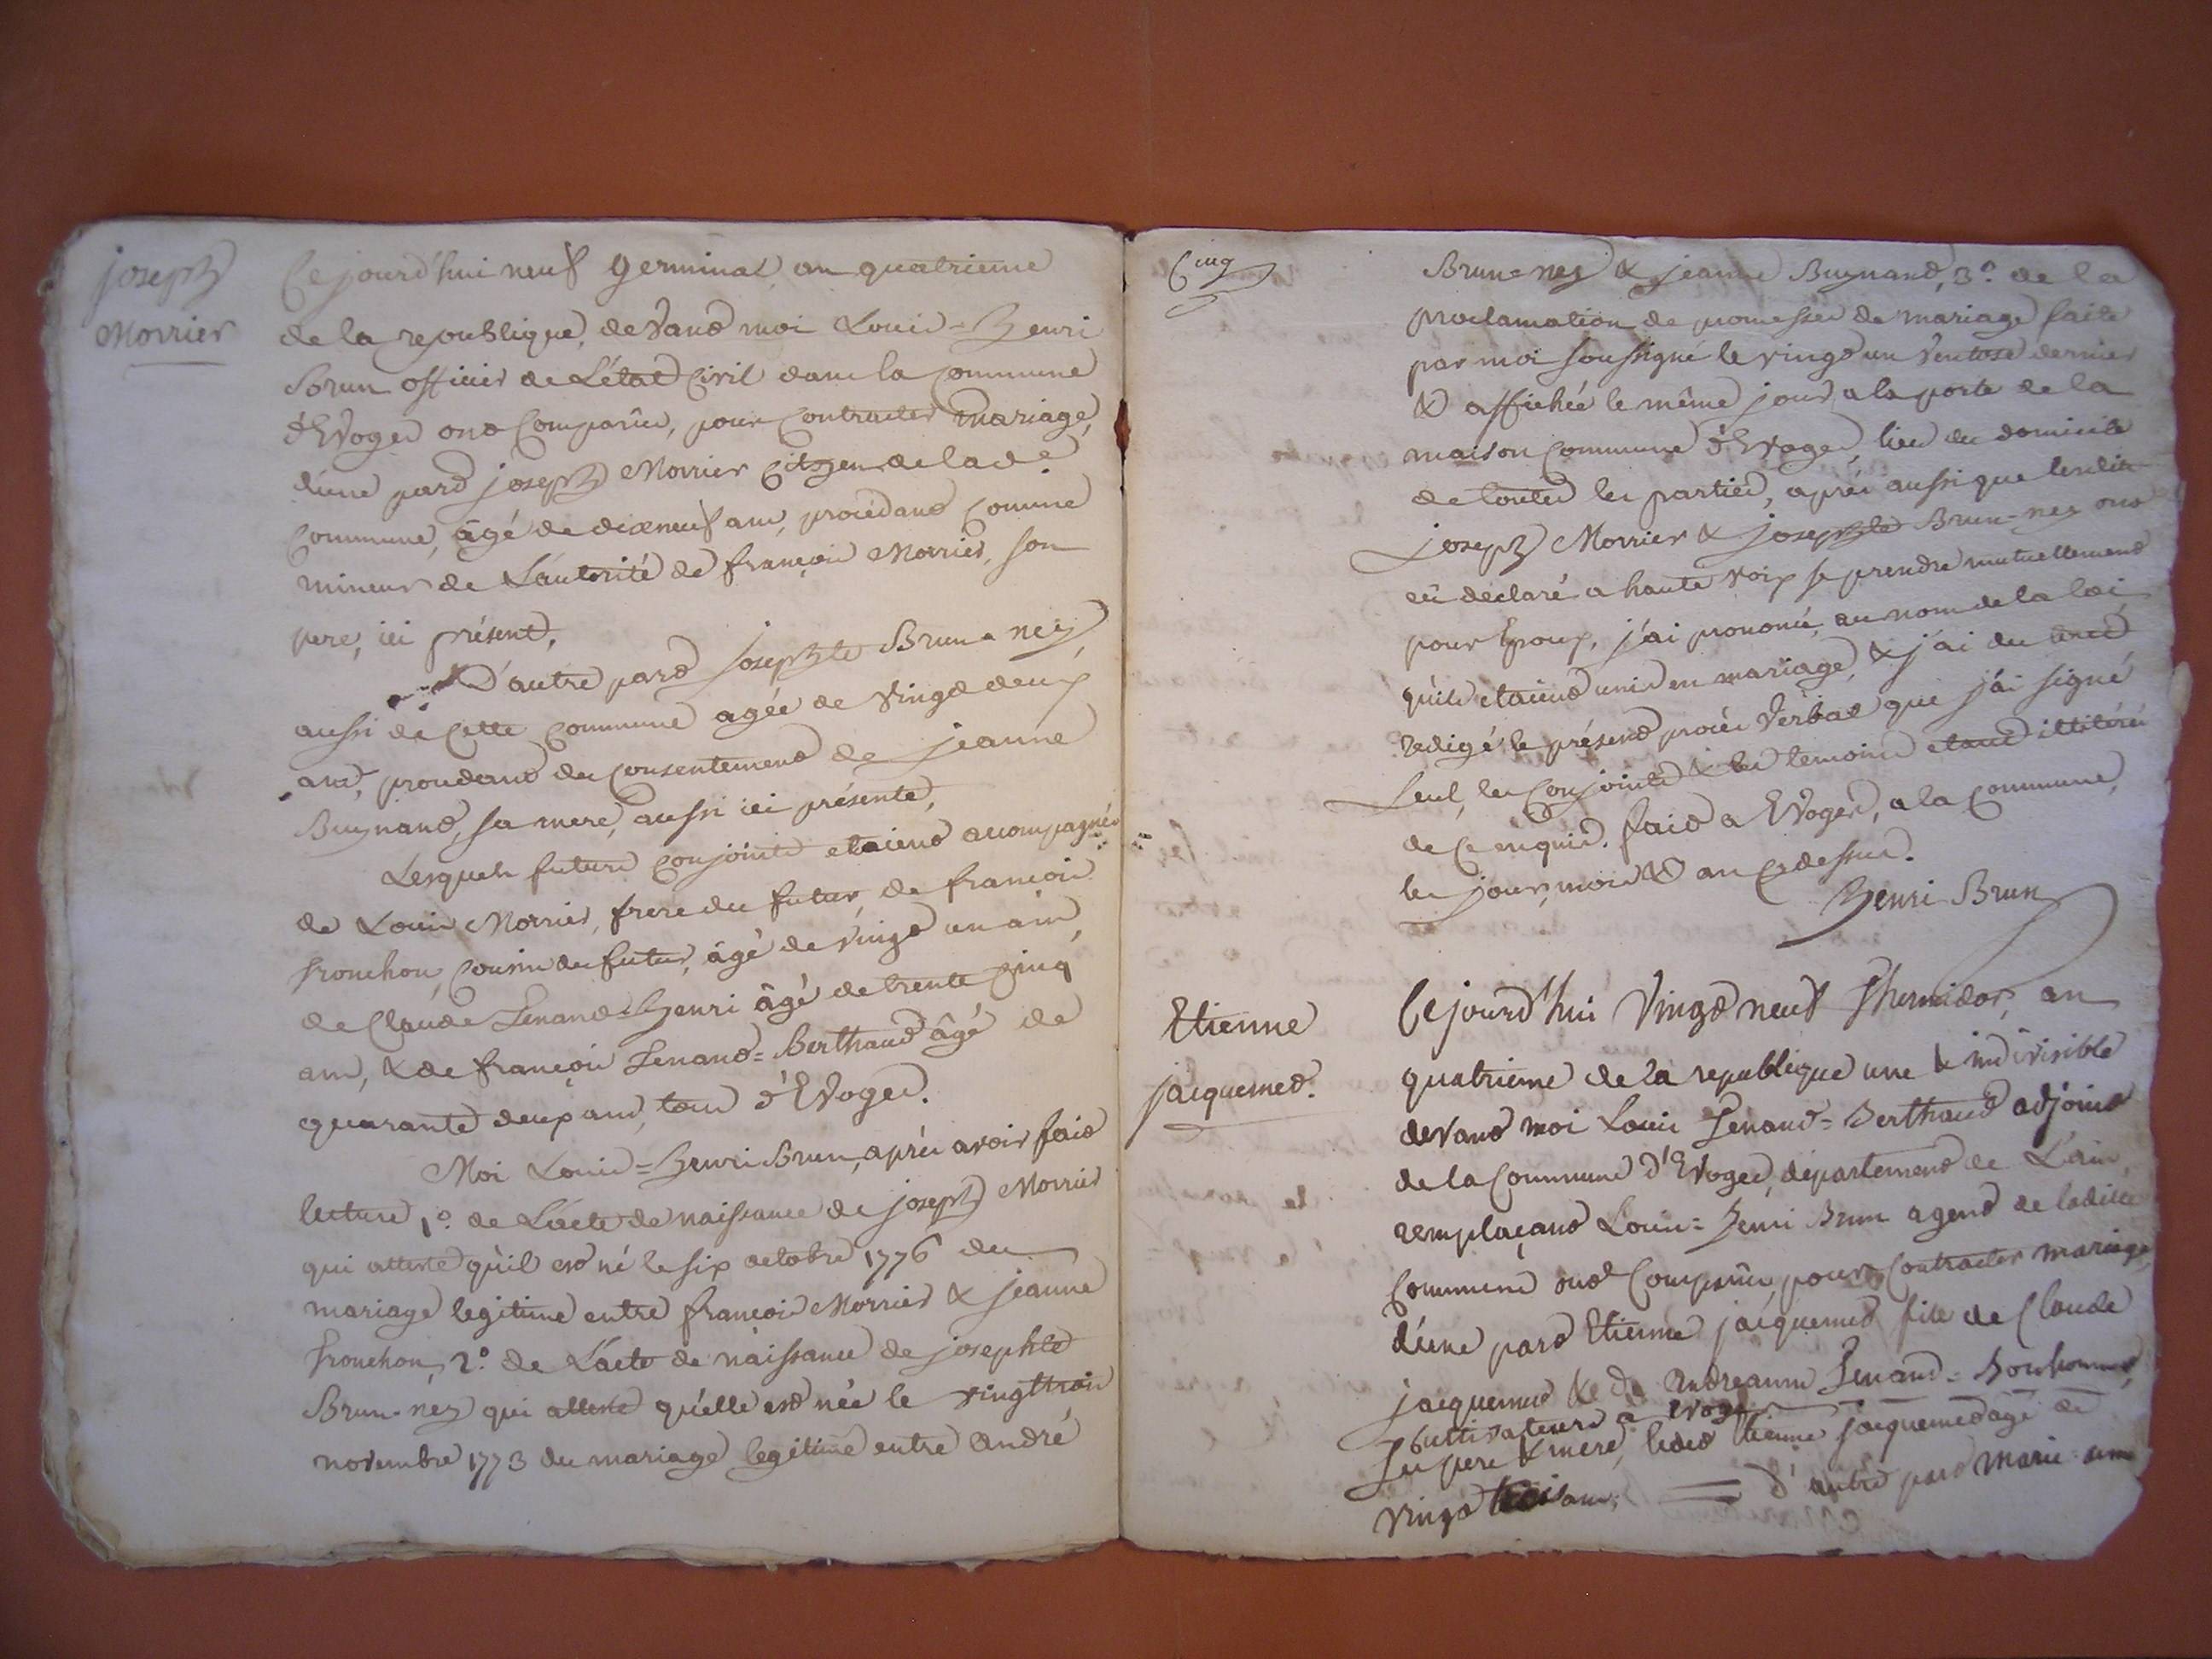 joseph
Morrier
Ce jourd'hui neuf germinal, an quatrieme
de la republique, devant moi Louis=henri
Brun officier de L'état civil dans la commune
d'Evoges ont comparûs, pour contracter mariage,
d'une part joseph Morrier citoyen de lad.e
commune, âgé de dixneuf ans, procédant comme
mineur de L'autorité de françois Morrier, son
pere, ici présent,
D'autre part josephte Brun=ney,
aussi de cette commune agée de vingt deux
ans, procedant du consentement de jeanne
Buynand, sa mere, aussi ici présente,
Lesquels futurs conjoints etaient accompagnés
de Louis Morrier, frere du futur, de françois
fronchon, cousin du futur, âgé de vingt un ans,
de Claude Senand=henri âgé de trente cinq
ans, & de françois Senand=Berthaud âgé de
quarante deux ans, tous d'Evoges.
Moi Louis=henri Brun, après avoir fait
lecture 1.o de L'acte de naissance de joseph Morrier
qui atteste qu'il est né le six octobre 1776 du
mariage legitime entre françois Morrier & jeanne
fronchon, 2.o de L'acte de naissance de josephte
Brun-ney qui atteste qu'elle est née le vingttrois
novembre 1773 du mariage legitime entre André
Cinq
Brun=ney & jeanne Buynand, 3.o de la
proclamation de promesses de mariage faite
par moi soussigné le vingt un ventose dernier
& affichée le même jour a la porte de la
maison commune d'Evoges, lieu du domicile
de toutes les parties, après aussi que lesdits
joseph Morrier & josephte Brun-ney ont
eû déclaré a haute voix se prendre mutuellement
pour Epoux, j'ai prononcé, au nom de la loi
qu'ils etaient unis en mariage, & j'ai du
redigé le présent procès verbal que j'ai signé
seul, les conjoints & les temoins etant illitérés
de ce enquis. fait a Evoges, a la commune,
les jour, mois & an cydessus.
henri Brun
Etienne
jacquemet.
Cejourd'hui Vingt neuf thermidor, an
quatrieme de la republique une & indivisible
devant moi Louis Senand=Berthaud adjoint
de la commune d'Evoges, departement de L'ain,
remplaçant Louis=henri Brun agent de ladite
commune ont comparûs, pour contracter mariage,
d'une part Etienne jacquemet fils de Claude
jacquemet & de Andreanne Senand=Bonhomme,
cultivateurs a Evoges
ses pere & mere, ledit Etienne jacquemet âgé de
vingt trois ans, = d'autre part Marie